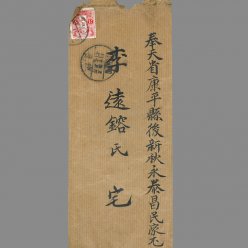 奉天省康平縣後新秋永泰昌民家屯
李遠鎔氏 宅